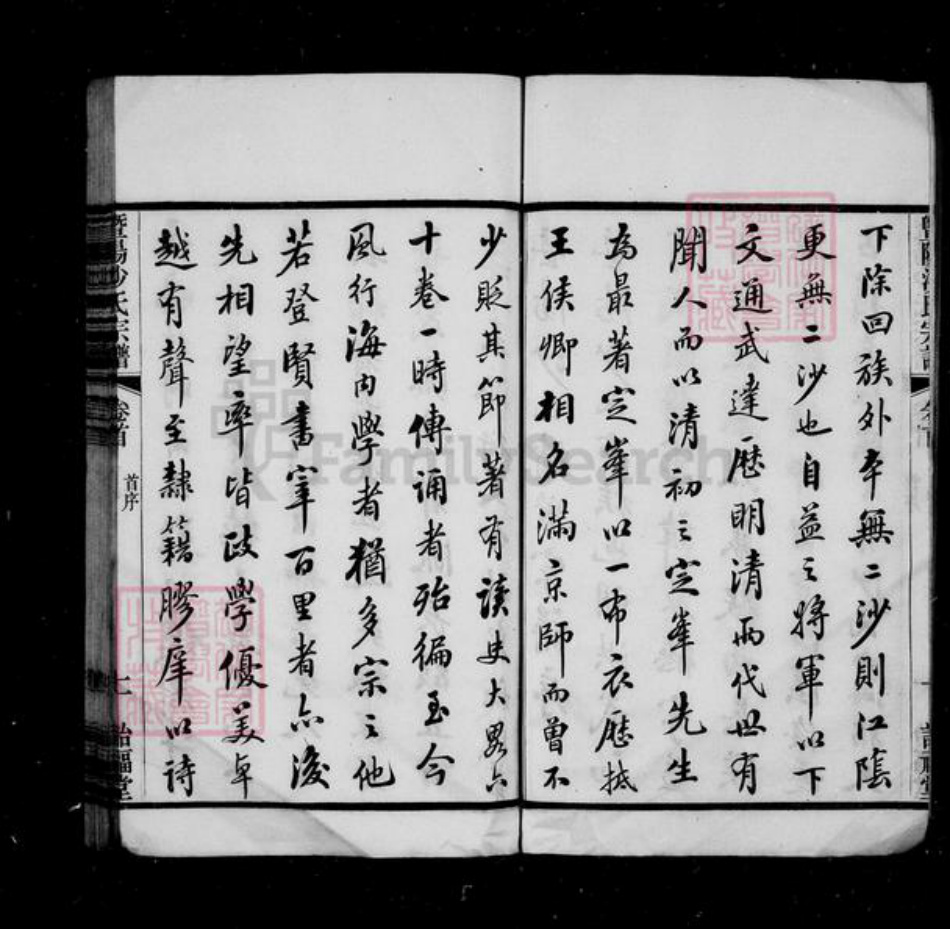 下除回族外本無二沙則江陰
更無二沙也自益之將軍以下
文通武達歷明清兩代世有
聞人而以清初之定峯先生
為最著定峯以一布衣歷抵
王侯卿相名滿京師而曾不
少貶其節著有讀史大畧六
十卷一時傳誦者殆徧至今
風行海內學者猶多宗之他
若登賢書宰百里者亦後
先相望率皆政學優美卓
越有聲至隸籍膠庠以詩
暨陽沙氏宗譜
卷首
首序
二
詒福堂
FamilySearch